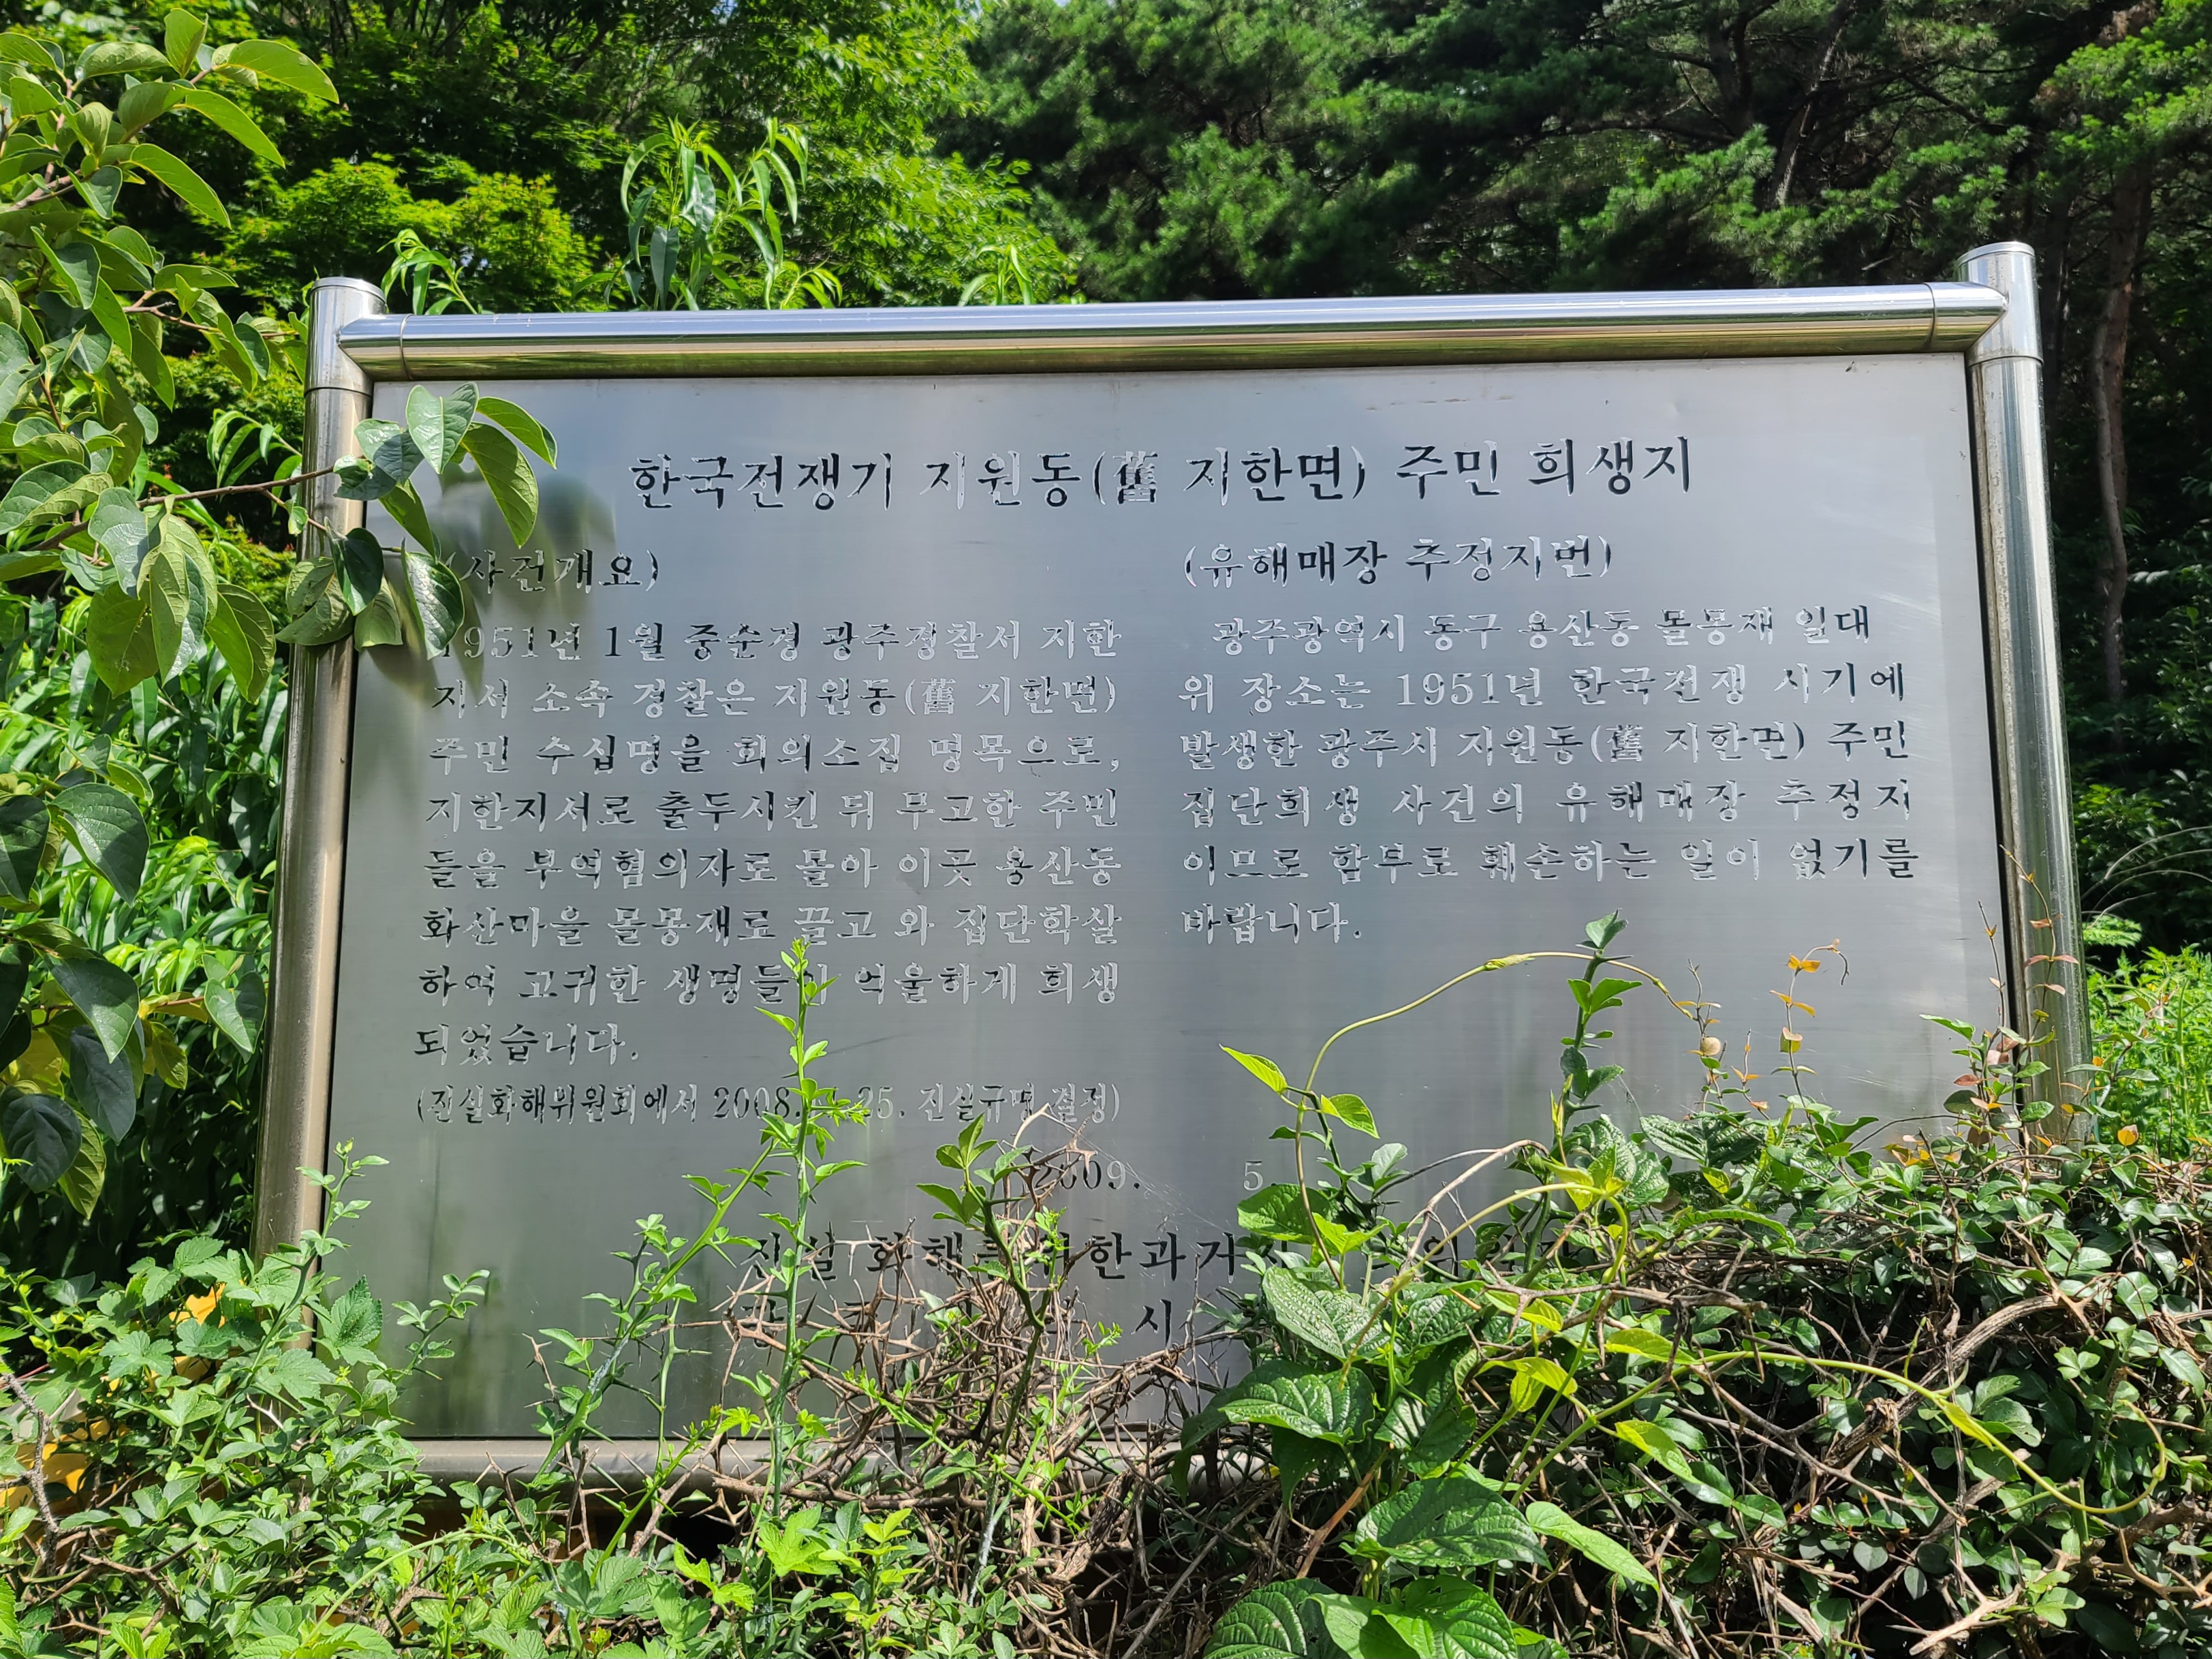 한국전쟁기 지원동(舊 지한면) 주민 희생지
(사건개요)
1951년 1월 중순경 광주경찰서 지한
지서 소속 경찰은 지원동(舊 지한면)
주민 수십명을 회의소집 명목으로,
지한지서로 출두시킨 뒤 무고한 주민
들을 부역혐의자로 몰아 이곳 용산동
화산마을 몰몽재로 끌고 와 집단학살
하여 고귀한 생명들이 억울하게 희생
되었습니다.
(진실화해위원회에서 2008. 25. 진실규명 결정)
(유해매장 추정지번)
광주광역시 동구 용산동 몰몽재 일대
위 장소는 1951년 한국전쟁 시기에
발생한 광주시 지원동(舊 지한면) 주민
집단희생 사건의 유해매장 추정지
이므로 함부로 훼손하는 일이 없기를
바랍니다.
2009. 5
진실 화해를위한과거사
시